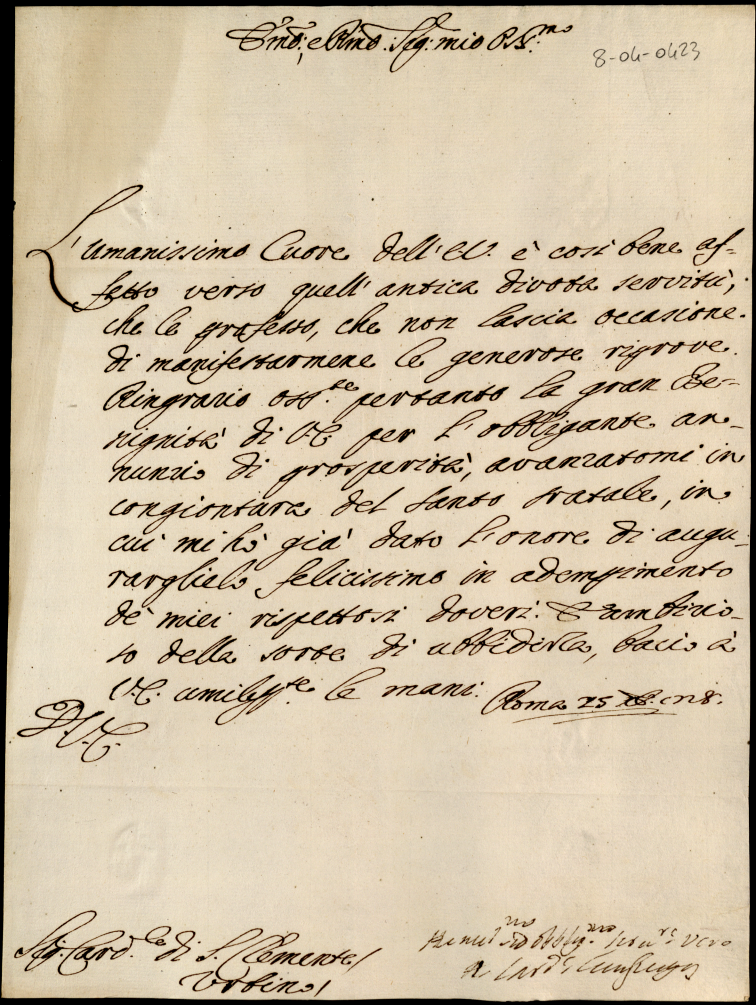 Em̃o, e Rmõ. Sig: mio Oss.mo
8-04-0423
L'umanissimo Cuore dell'EV. è così bene af-
fetto verso quell'antica divota servitù,
che le professo, che non lascia occasione
di manifestarmene le generose riprove.
Ringrazio oss.te pertanto la gran Be-
nignità di V.E. per l'obbligante an-
nunzio di prosperità, avanzatomi in
congiontura del Santo Natale, in
cui mi hò già dato l'onore di augu-
rarglielo felicissimo in adempimento
de' miei rispettosi doveri. E ambizio-
so della sorte di ubbidirla, bacio à
V.E. umiliss.te le mani. Roma 25
D.V.E.
Sig. Card.le di S. Clemente/
Urbino/
Humil.mo ed obblig.mo ser.re vero